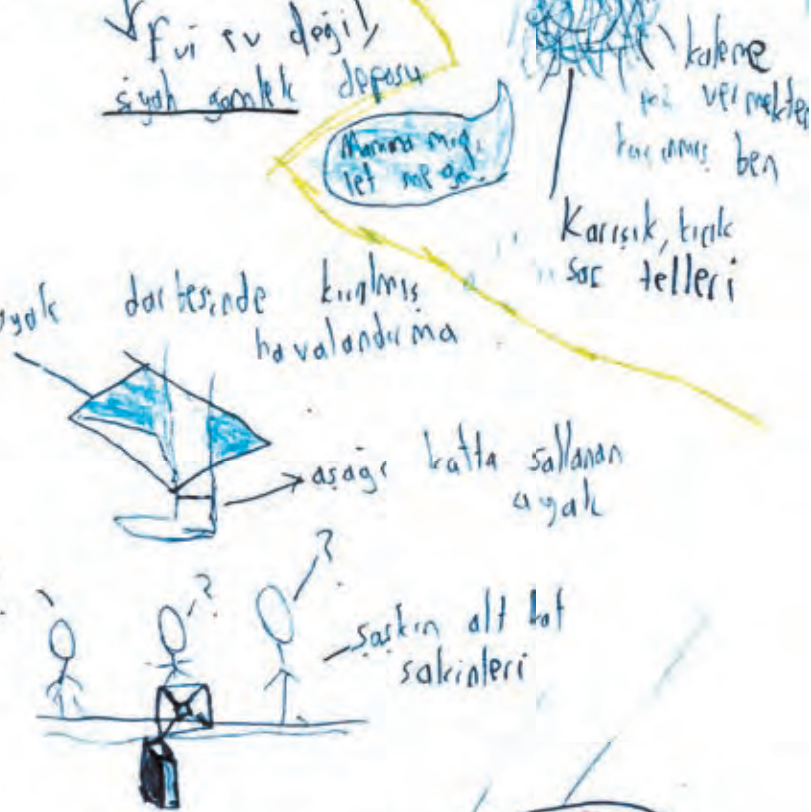 Evi ev değil,
siyah gömlek deposu
Mamma mia,
let me go.
kaleme
vermekten
ben
Karışık, kırık
saç telleri
ayak darbesinde kırılmış
havalandırma
aşağı katta sallanan
ayak
?
?
şaşkın alt kat
sakinleri